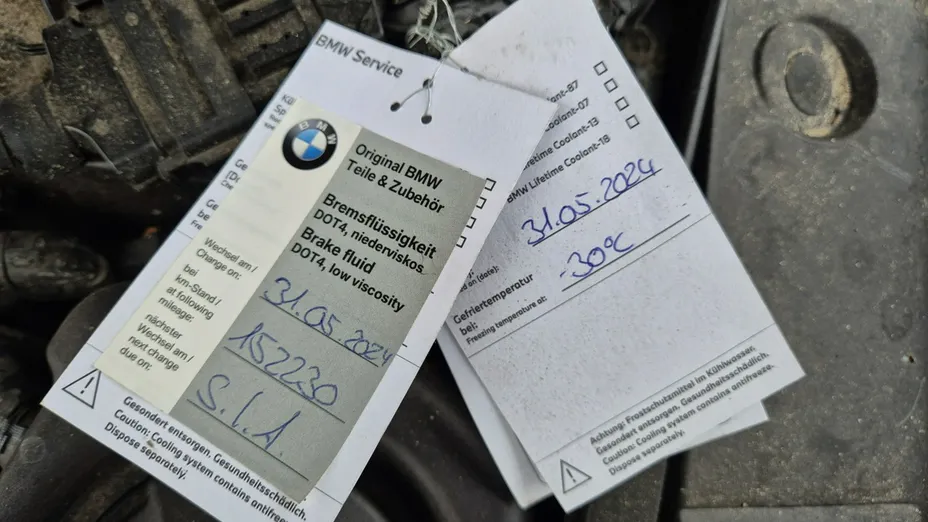 BMW Service
BMW
Original BMW
Teile & Zubehör
Bremsflüssigkeit
DOT4, niederviskos
Brake fluid
DOT4, low viscosity
Wechsel am /
Change on:
31.05.2024
bei
km-Stand /
at following
mileage:
152230
nächster
Wechsel am /
next change
due on:
S.I.A.
Gesondert entsorgen. Gesundheitsschädlich.
Caution: Cooling system contains antifreeze.
Dispose separately.
BMW Lifetime Coolant-18
31.05.2024
Gefriertemperatur
bei:
Freezing temperature at:
-30°C
Achtung: Frostschutzmittel im Kühlwasser.
Gesondert entsorgen. Gesundheitsschädlich.
Caution: Cooling system contains antifreeze.
Dispose separately.